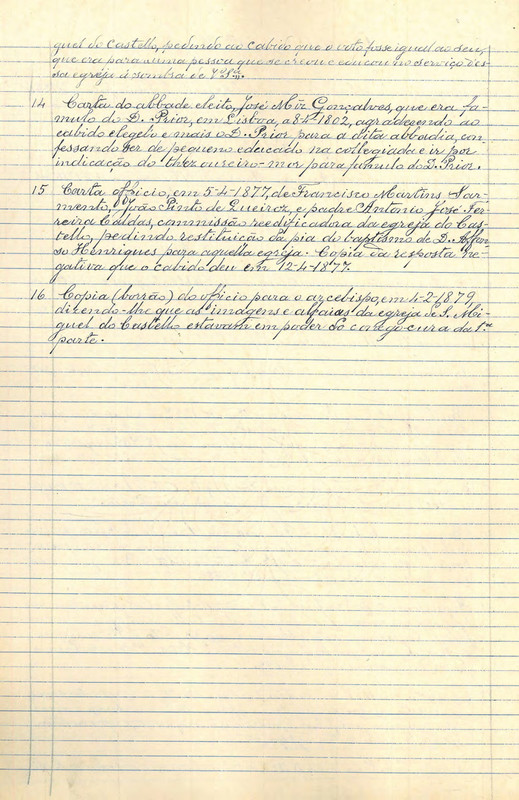 guel do Castello, pedindo ao cabido que o voto fosse igual ao seu,
que era para uma pessoa que se creou e educou no serviço des-
sa egreja à sombra de
14 Carta do abbade eleito, José Miz Gonçalves, que era fa-
mulo do D. Prior, em Lisboa, a 8-4-1802, agradecendo ao
cabido elegel-o e mais o D. Prior para a dita abbadia, con-
fessando ser de pequeno educado na collegiada e ir por
indicação do thezoureiro-mor para famulo do D. Prior.
15 Carta officio, em 5-4-1877, de Francisco Martins Sar-
mento, João Pinto de Queiroz, e padre Antonio José Fer-
reira Caldas, commissão reedificadora da egreja do Cas-
tello, pedindo restituição da pia do baptismo de D. Affon-
so Henriques para aquella egreja. Copia da resposta ne-
gativa que o cabido deu em 12-4-1877.
16 Copia (borrão) do officio para o arcebispo, em 4-2-1879,
dizendo-lhe que as imagens e alfaias da egreja de S. Mi-
guel do Castello estavam em poder do conego-cura da 1.ª
parte.